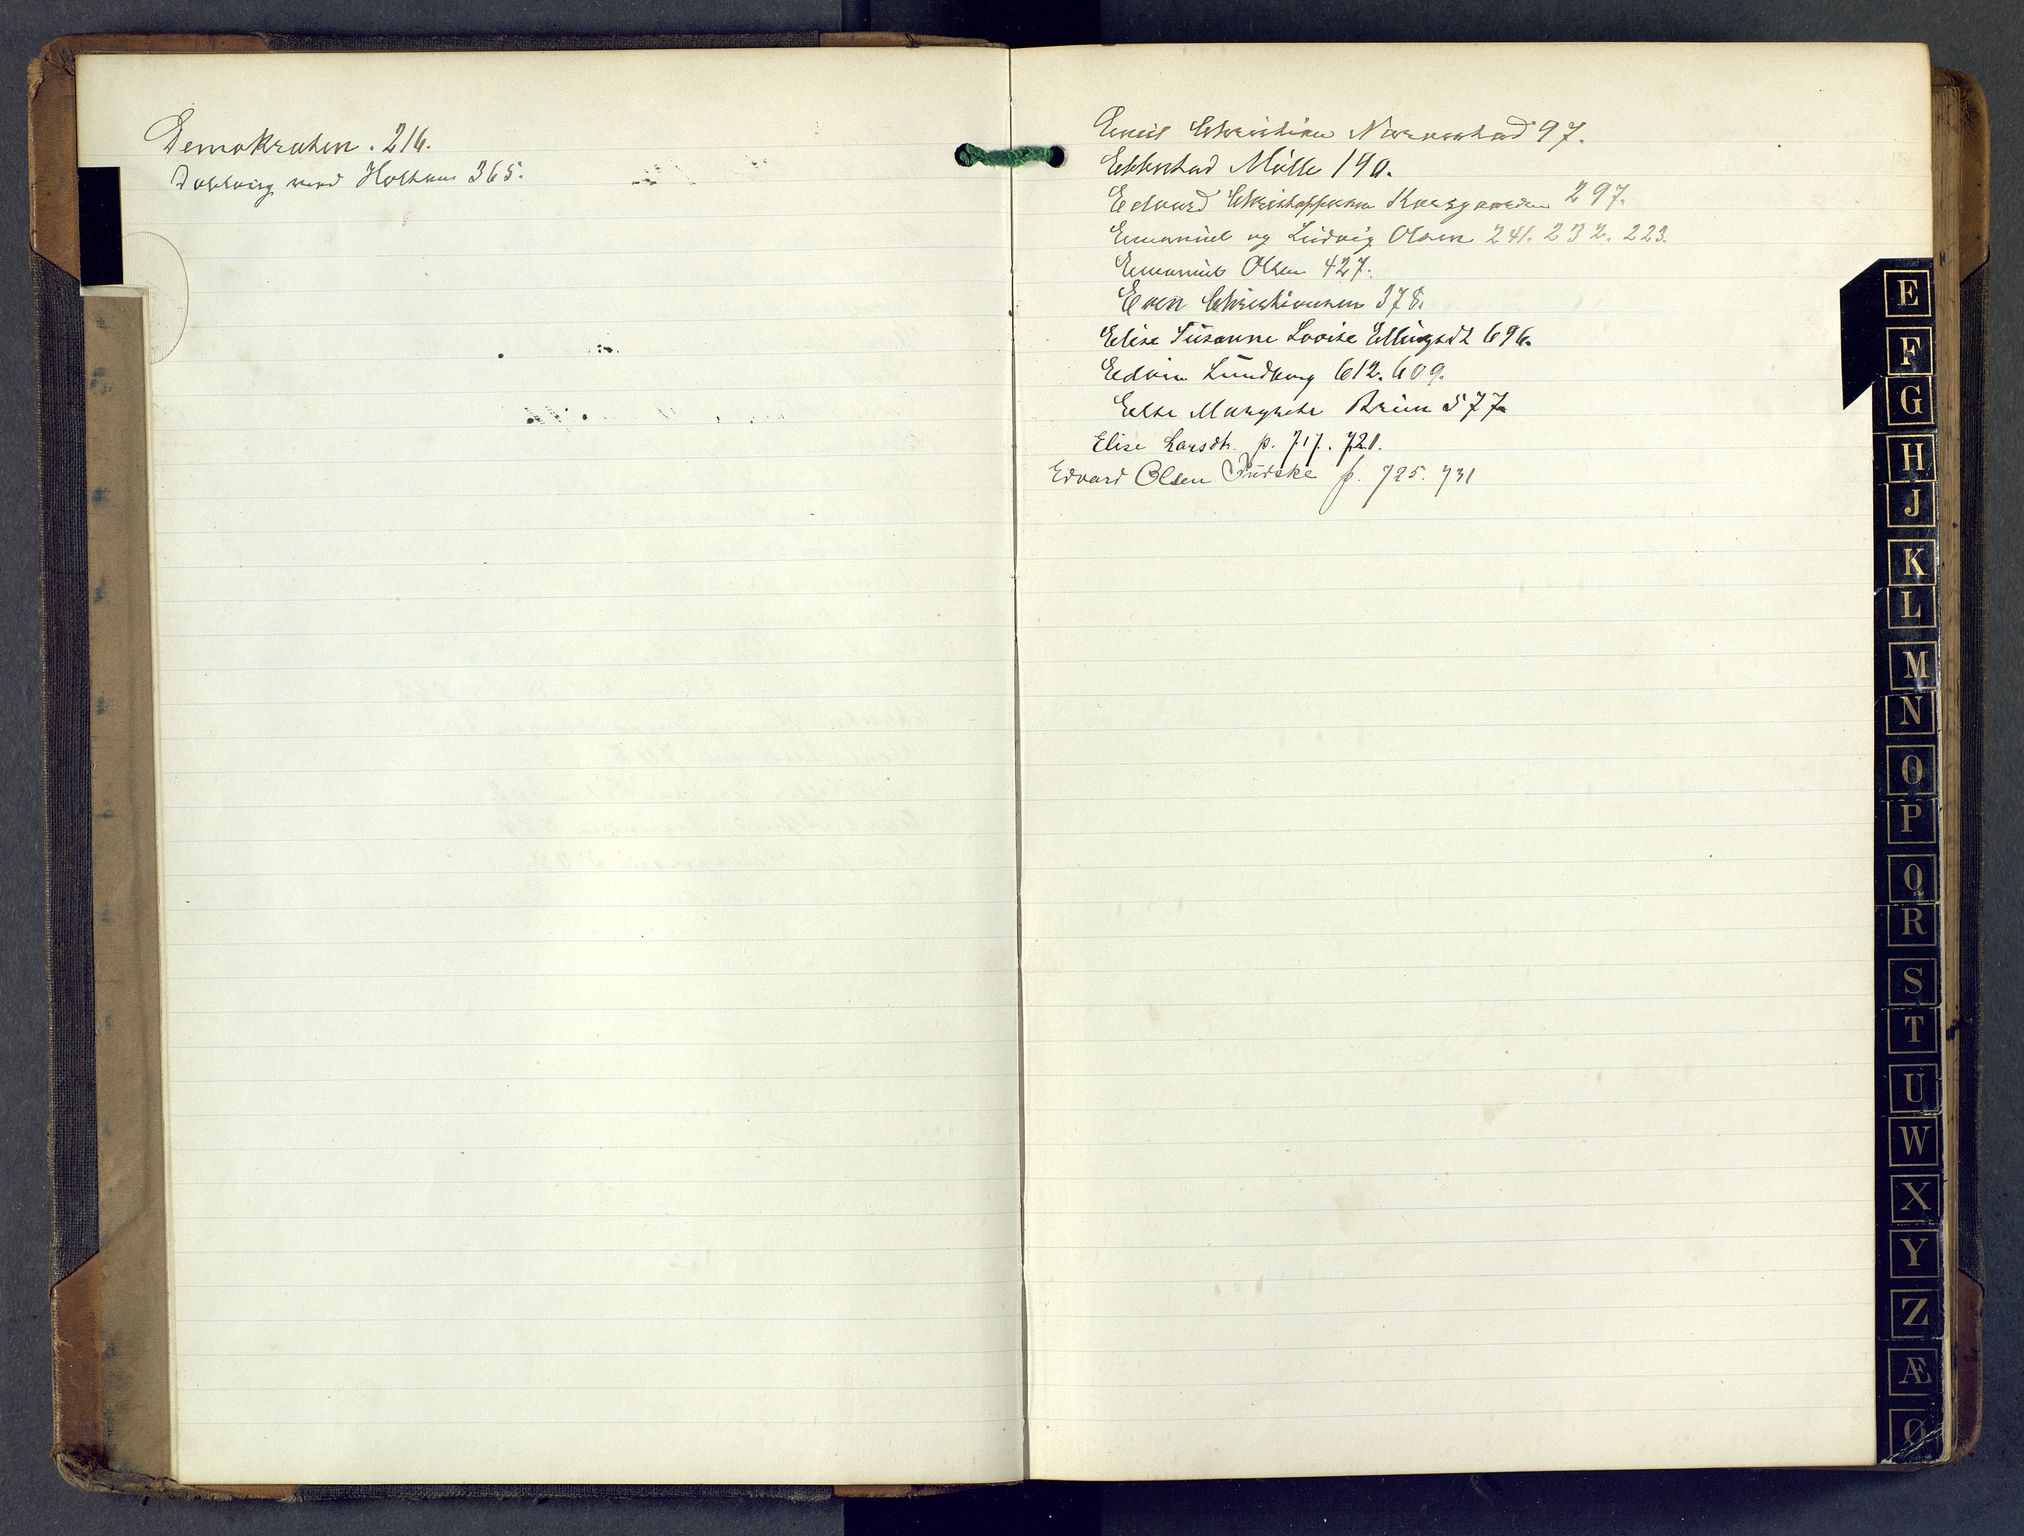 Demokraten. 216.
ved Holtum 365.
Emil Christian 97.
Mölle 190.
Edvard Christoffersen Korsgaarden 297.
Emanuel og Ludvig Olsen 241. 232. 223.
Emanuel Olsen 427.
Even Christiansen 378.
Elise Susanne Lovise Ellingsdt 696.
Edvin Lundberg 612. 609.
Else Margrete Brun 577
Elise Larsdtr. p. 717. 721.
Edvard Olsen p. 725. 731
E
F
G
H
J
K
L
M
N
O
P
Q
R
S
T
U
W
X
Y
Z
Æ
Ø